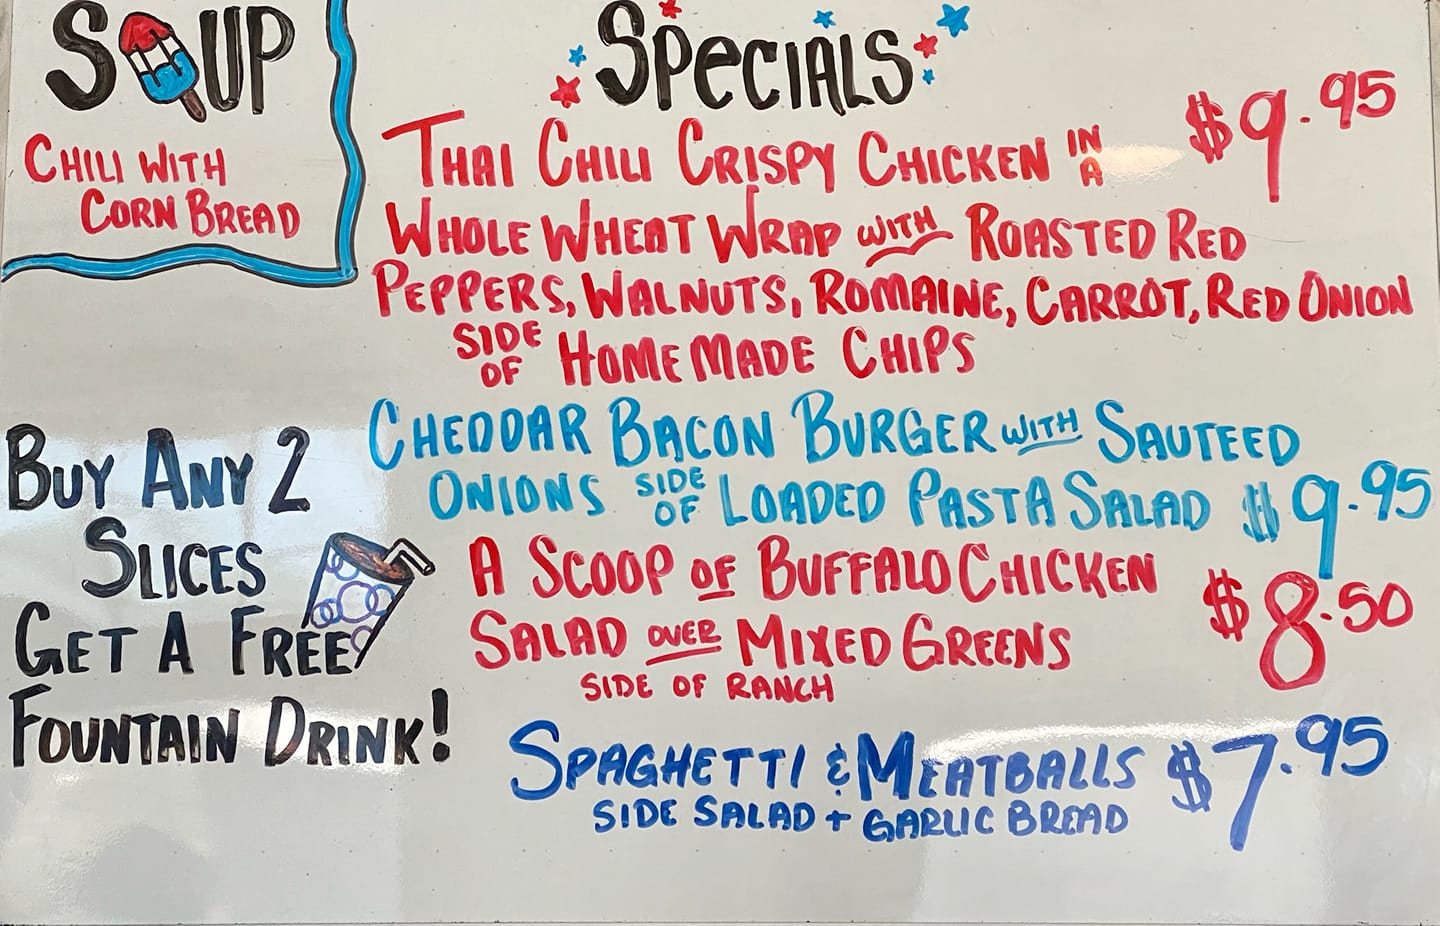 SOUP
CHILI WITH
CORN BREAD
SPECIALS
THAI CHILI CRISPY CHICKEN IN A $9.95
WHOLE WHEAT WRAP WITH ROASTED RED
PEPPERS, WALNUTS, ROMAINE, CARROT, RED ONION
SIDE OF HOMEMADE CHIPS
CHEDDAR BACON BURGER WITH SAUTEED
ONIONS SIDE OF LOADED PASTA SALAD $9.95
A SCOOP OF BUFFALO CHICKEN
SALAD OVER MIXED GREENS $8.50
SIDE OF RANCH
SPAGHETTI & MEATBALLS $7.95
SIDE SALAD + GARLIC BREAD
BUY ANY 2
SLICES
GET A FREE
FOUNTAIN DRINK!